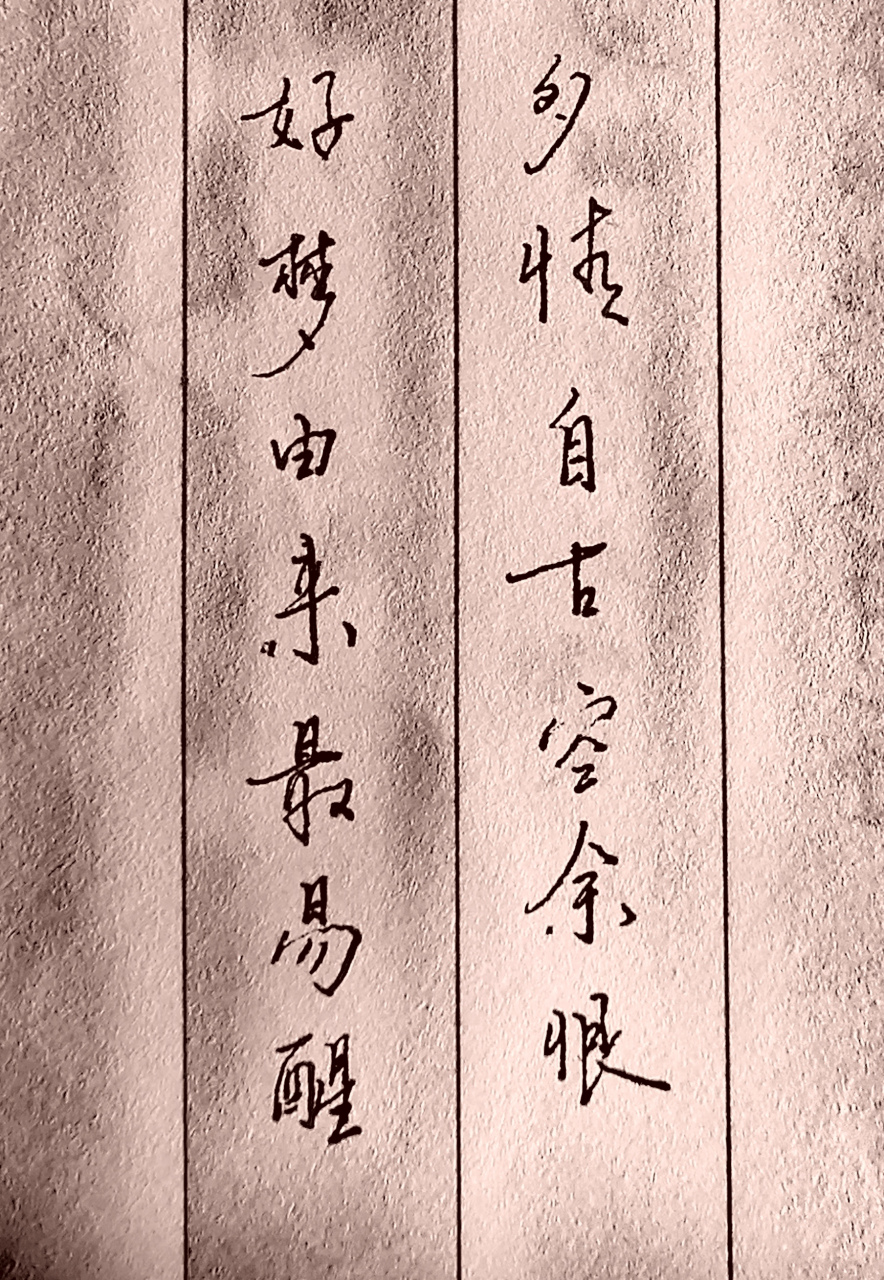 多情自古空余恨
好梦由来最易醒